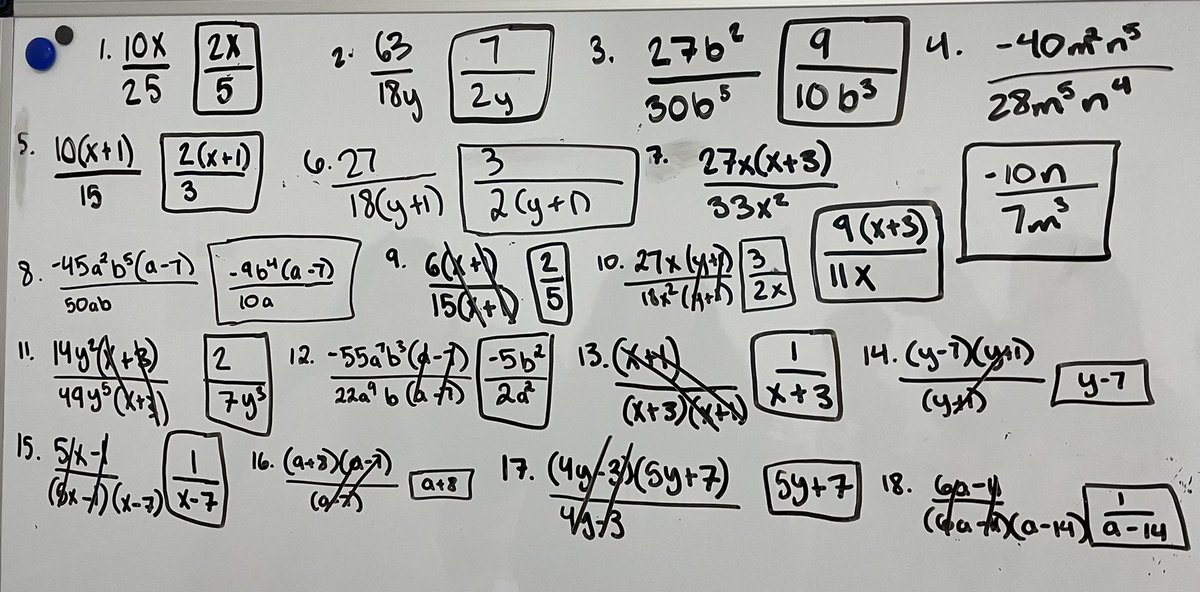 1. 10x/25 2x/5 2. 63/18y 7/2y 3. 27b²/30b⁵ 9/10b³ 4. -40m²n⁵/28m⁵n⁴
5. 10(x+1)/15 2(x+1)/3 6. 27/18(y+1) 3/2(y+1) 7. 27x(x+3)/33x² 9(x+3)/11x -10n/7m³
8. -45a²b⁵(a-7)/50ab -9b⁴(a-7)/10a 9. 6(x+1)/15(x+1) 2/5 10. 27x(y+1)/18x²(y+1) 3/2x
11. 14y²(x+3)/49y⁵(x+3) 2/7y³ 12. -55a⁷b³(a-7)/22a⁹b(a-7) -5b²/2a² 13. (x+1)/(x+3)(x+1) 1/x+3 14. (y-7)(y+1)/(y+1) y-7
15. 5x-1/(5x-1)(x-7) 1/x-7 16. (a+8)(a-7)/(a-7) a+8 17. (4y-3)(5y+7)/4y-3 5y+7 18. 6a-11/(6a-11)(a-14) 1/a-14